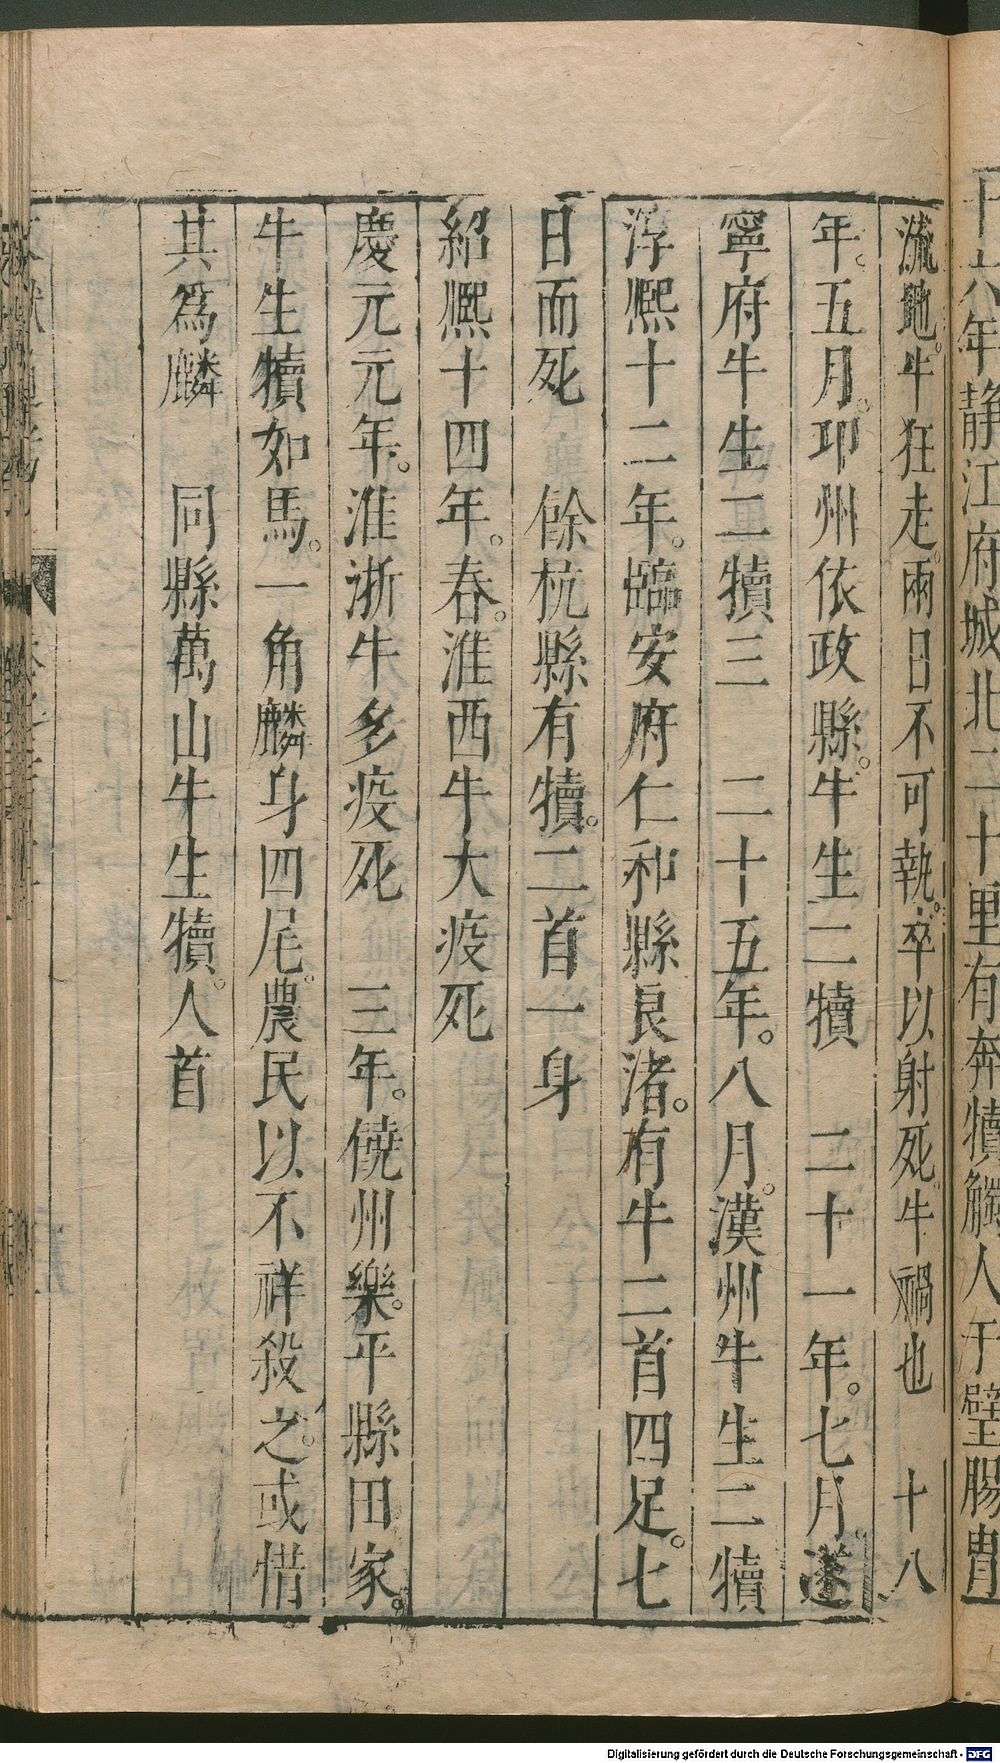 十六年靜江府城北二十里有奔犢觸人于壁腸胃
流地。牛狂走。兩日不可執。卒以射死。牛禍也　十八
年。五月。邛州依政縣。牛生二犢　二十一年。七月。遂
寧府牛生二犢三　二十五年。八月。漢州牛生二犢
淳熙十二年。臨安府仁和縣良渚。有牛二首四足。七
日而死　餘杭縣有犢。二首一身
紹熙十四年。春。淮西牛大疫死
慶元元年。淮浙牛多疫死　三年。饒州樂。平縣田家。
牛生犢如馬。一角麟身四尾。農民以不祥殺之。或惜
其爲麟　同縣萬山牛生犢。人首
Digitalisierung gefördert durch die Deutsche Forschungsgemeinschaft - DFG